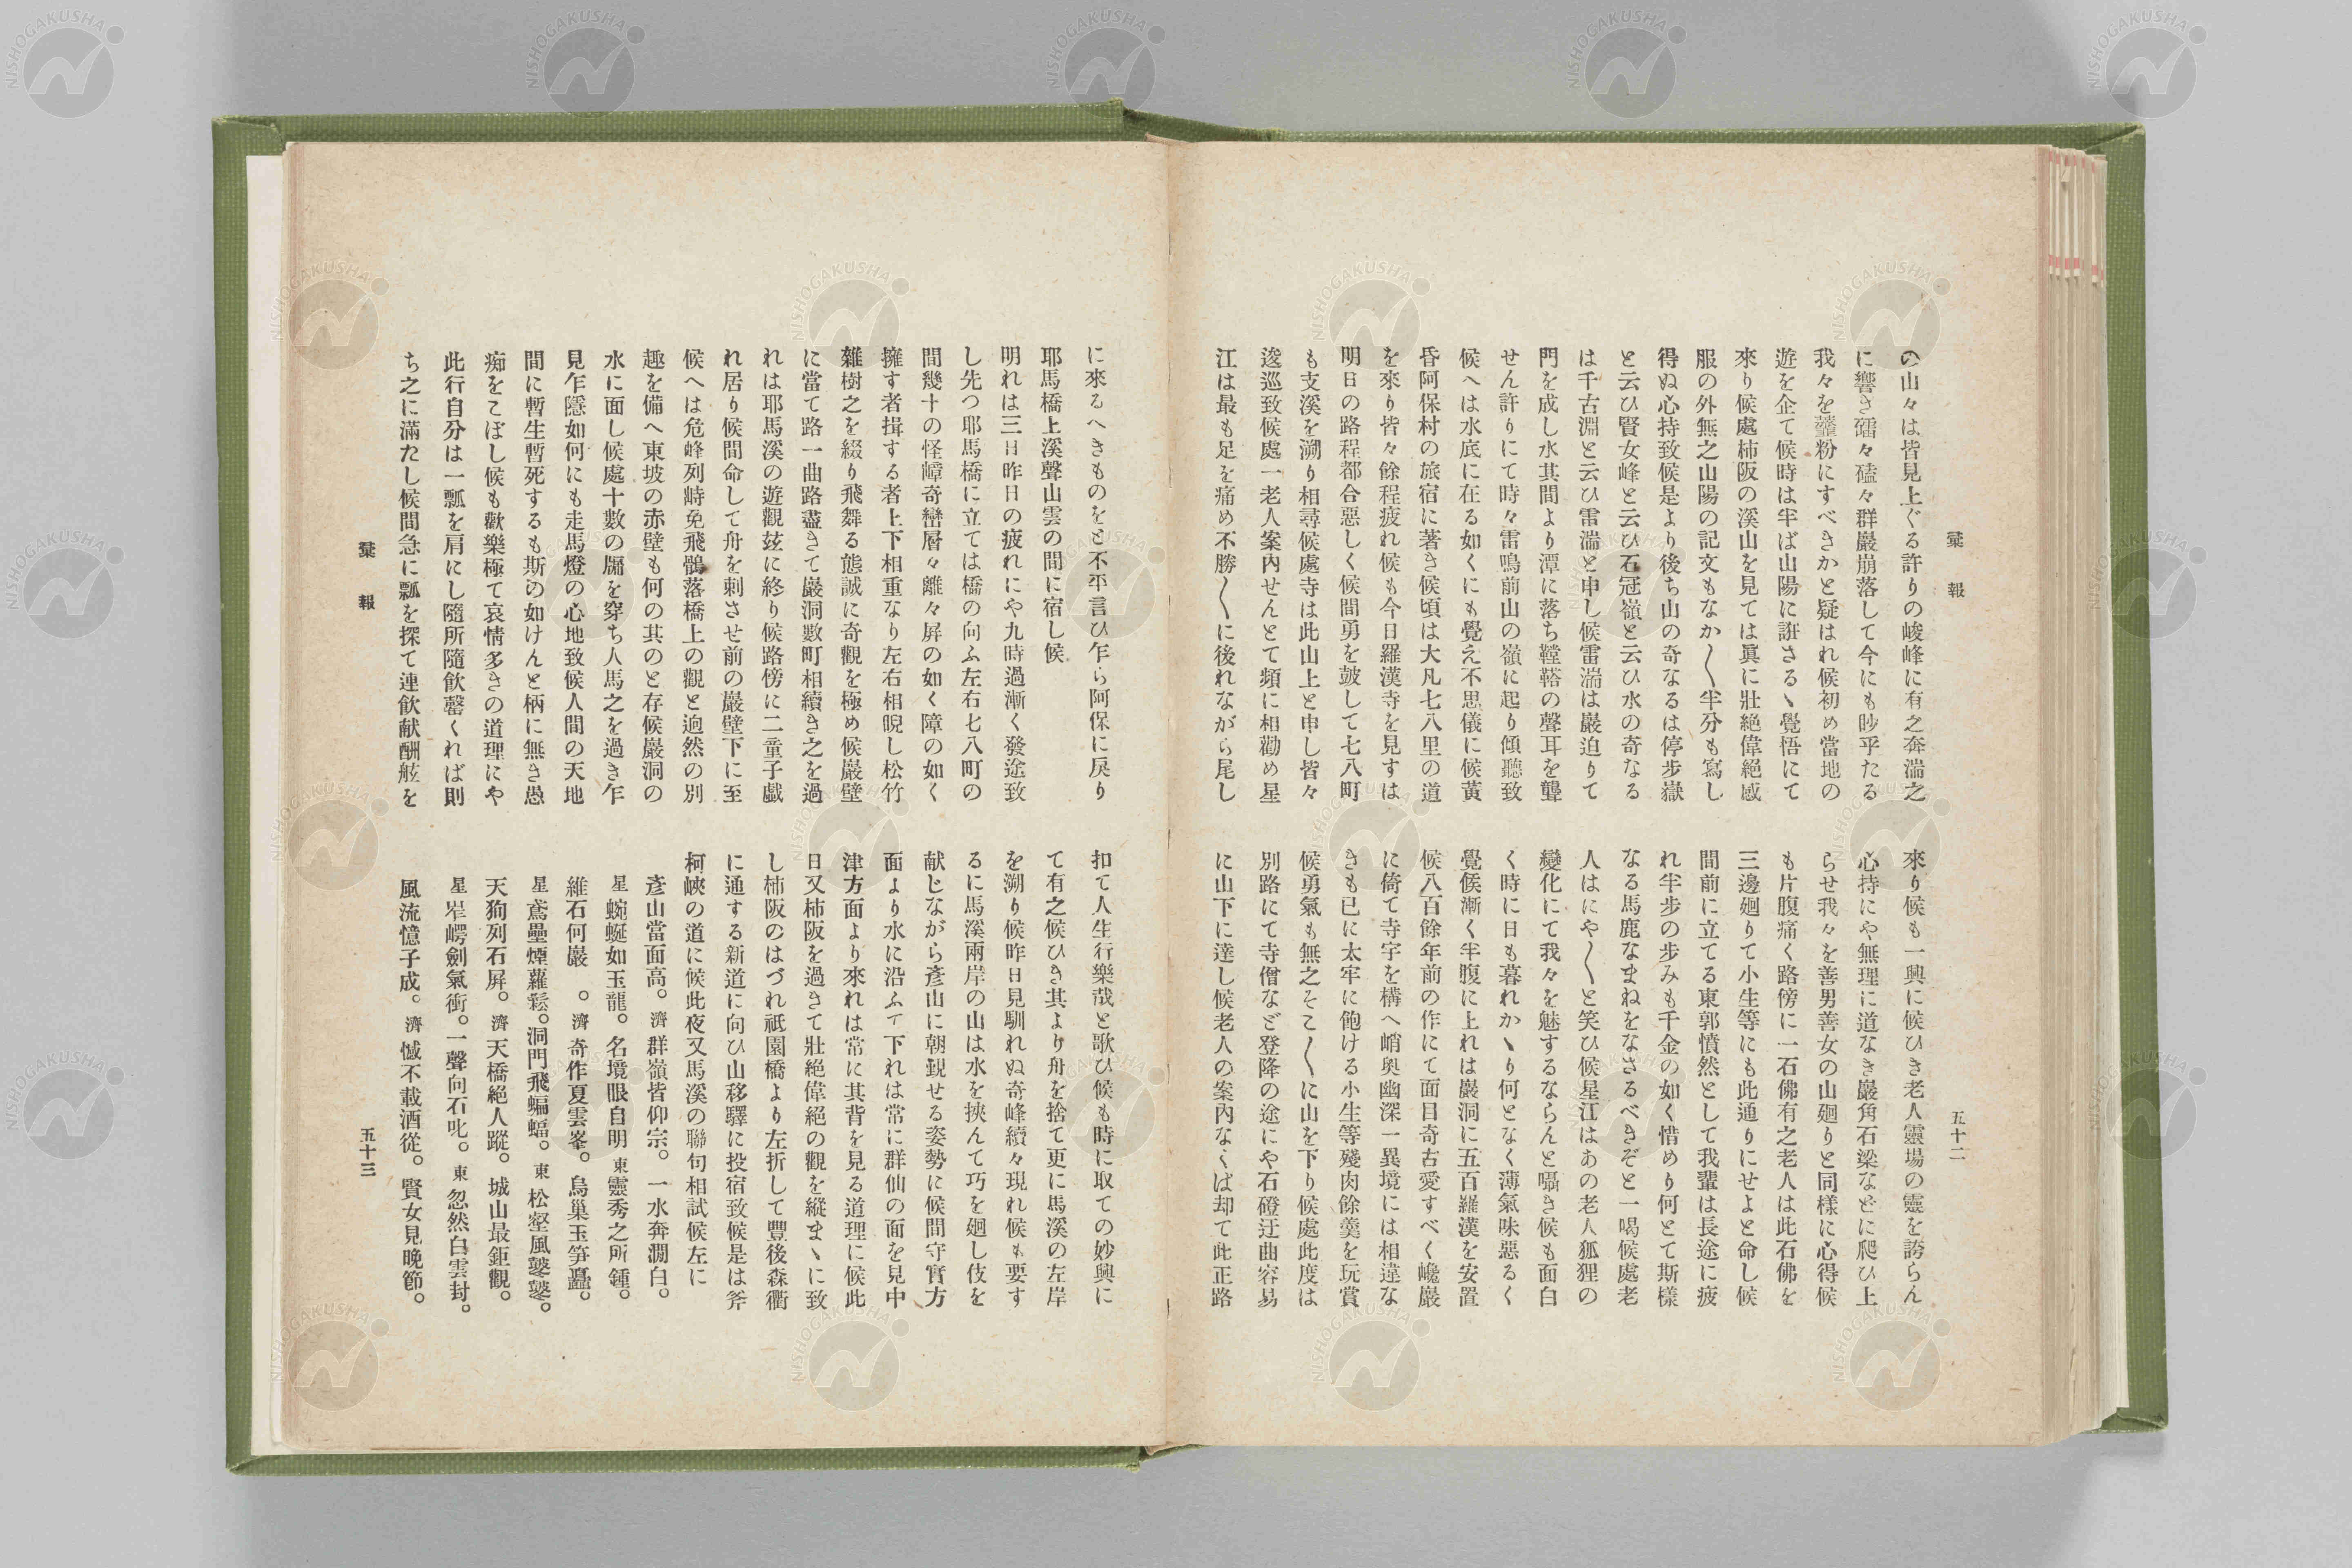 彙報
五十二
の山々は皆見上ぐる許りの峻峰に有之奔湍之
に響き礌々磕々群巖崩落して今にも眇乎たる
我々を虀粉にすべきかと疑はれ候初め當地の
遊を企て候時は半ば山陽に誑さるヽ覺悟にて
來り候處柿阪の溪山を見ては眞に壯絕偉絕感
服の外無之山陽の記文もなか〱半分も寫し
得ぬ心持致候是より後ち山の奇なるは停步嶽
と云ひ賢女峰と云ひ石冠嶺と云ひ水の奇なる
は千古淵と云ひ雷湍と申し候雷湍は巖迫りて
門を成し水其間より潭に落ち鞺鞳の聲耳を聾
せん許りにて時々雷鳴前山の嶺に起り傾聽致
候へは水底に在る如くにも覺え不思儀に候黃
昏阿保村の旅宿に著き候頃は大凡七八里の道
を來り皆々餘程疲れ候も今日羅漢寺を見すは
明日の路程都合惡しく候間勇を皷して七八町
も支溪を溯り相尋候處寺は此山上と申し皆々
逡巡致候處一老人案內せんとて頻に相勸め星
江は最も足を痛め不勝〱に後れながら尾し
來り候も一興に候ひき老人靈場の靈を誇らん
心持にや無理に道なき巖角石梁などに爬ひ上
らせ我々を善男善女の山廻りと同樣に心得候
も片腹痛く路傍に一石佛有之老人は此石佛を
三邊廻りて小生等にも此通りにせよと命し候
間前に立てる東郭憤然として我輩は長途に疲
れ半步の步みも千金の如く惜めり何とて斯樣
なる馬鹿なまねをなさるべきぞと一喝候處老
人はにや〱と笑ひ候星江はあの老人狐狸の
變化にて我々を魅するならんと囁き候も面白
く時に日も暮れかヽり何となく薄氣味惡るく
覺候漸く半腹に上れは巖洞に五百羅漢を安置
候八百餘年前の作にて面目奇古愛すべく巉巖
に倚て寺字を構へ峭奧幽深一異境には相違な
きも已に太牢に飽ける小生等殘肉餘羹を玩賞
候勇氣も無之そこ〱に山を下り候處此度は
別路にて寺僧など登降の途にや石磴迂曲容易
に山下に達し候老人の案內なくば却て此正路
に來るへきものをと不平言ひ乍ら阿保に戾り
耶馬橋上溪聲山雲の間に宿し候
明れは三日昨日の疲れにや九時過漸く發途致
し先つ耶馬橋に立ては橋の向ふ左右七八町の
間幾十の怪嶂奇巒層々離々屏の如く障の如く
擁す者揖する者上下相重なり左右相睨し松竹
雜樹之を綴り飛舞る態誠に奇觀を極め候巖壁
に當て路一曲路盡きて巖洞數町相續き之を過
れは耶馬溪の遊觀茲に終り候路傍に二童子戲
れ居り候間命して舟を刺させ前の巖壁下に至
候へは危峰列峙免飛鶻落橋上の觀と逈然の別
趣を備へ東坡の赤壁も何の其のと存候巖洞の
水に面し候處十數の牖を穿ち人馬之を過き乍
見乍隱如何にも走馬燈の心地致候人間の天地
間に暫生暫死するも斯の如けんと柄に無き愚
痴をこぼし候も歡樂極て哀情多きの道理にや
此行自分は一瓢を肩にし隨所隨飮罄くれば則
ち之に滿たし候間急に瓢を探て連飮献酬舷を
扣て人生行樂哉と歌ひ候も時に取ての妙興に
て有之候ひき其より舟を捨て更に馬溪の左岸
を溯り候昨日見馴れぬ奇峰續々現れ候も要す
るに馬溪兩岸の山は水を挾んて巧を廻し伎を
献じながら彥山に朝覲せる姿勢に候間守實方
面より水に沿ふて下れは常に群仙の面を見中
津方面より來れは常に其背を見る道理に候此
日又柿阪を過きて壯絕偉絕の觀を縱まヽに致
し柿阪のはづれ祇園橋より左折して豐後森衢
に通する新道に向ひ山移驛に投宿致候是は斧
柯峽の道に候此夜又馬溪の聯句相試候左に
彥山當面高。濟 群嶺皆仰宗。一水奔澗白。
星 蜿蜒如玉龍。名境眼自明 東 靈秀之所鍾。
維石何巖 。濟 奇作夏雲峯。鳥巢玉笋矗。
星 鳶壘煙蘿鬆。洞門飛蝙蝠。東 松壑風鼕鼕。
天狗列石屏。濟 天橋絕人蹤。城山最鉅觀。
星 崒崿劍氣衝。一聲向石叱。東 忽然白雲封。
風流憶子成。濟 憾不載酒從。賢女見晚節。
彙報
五十三